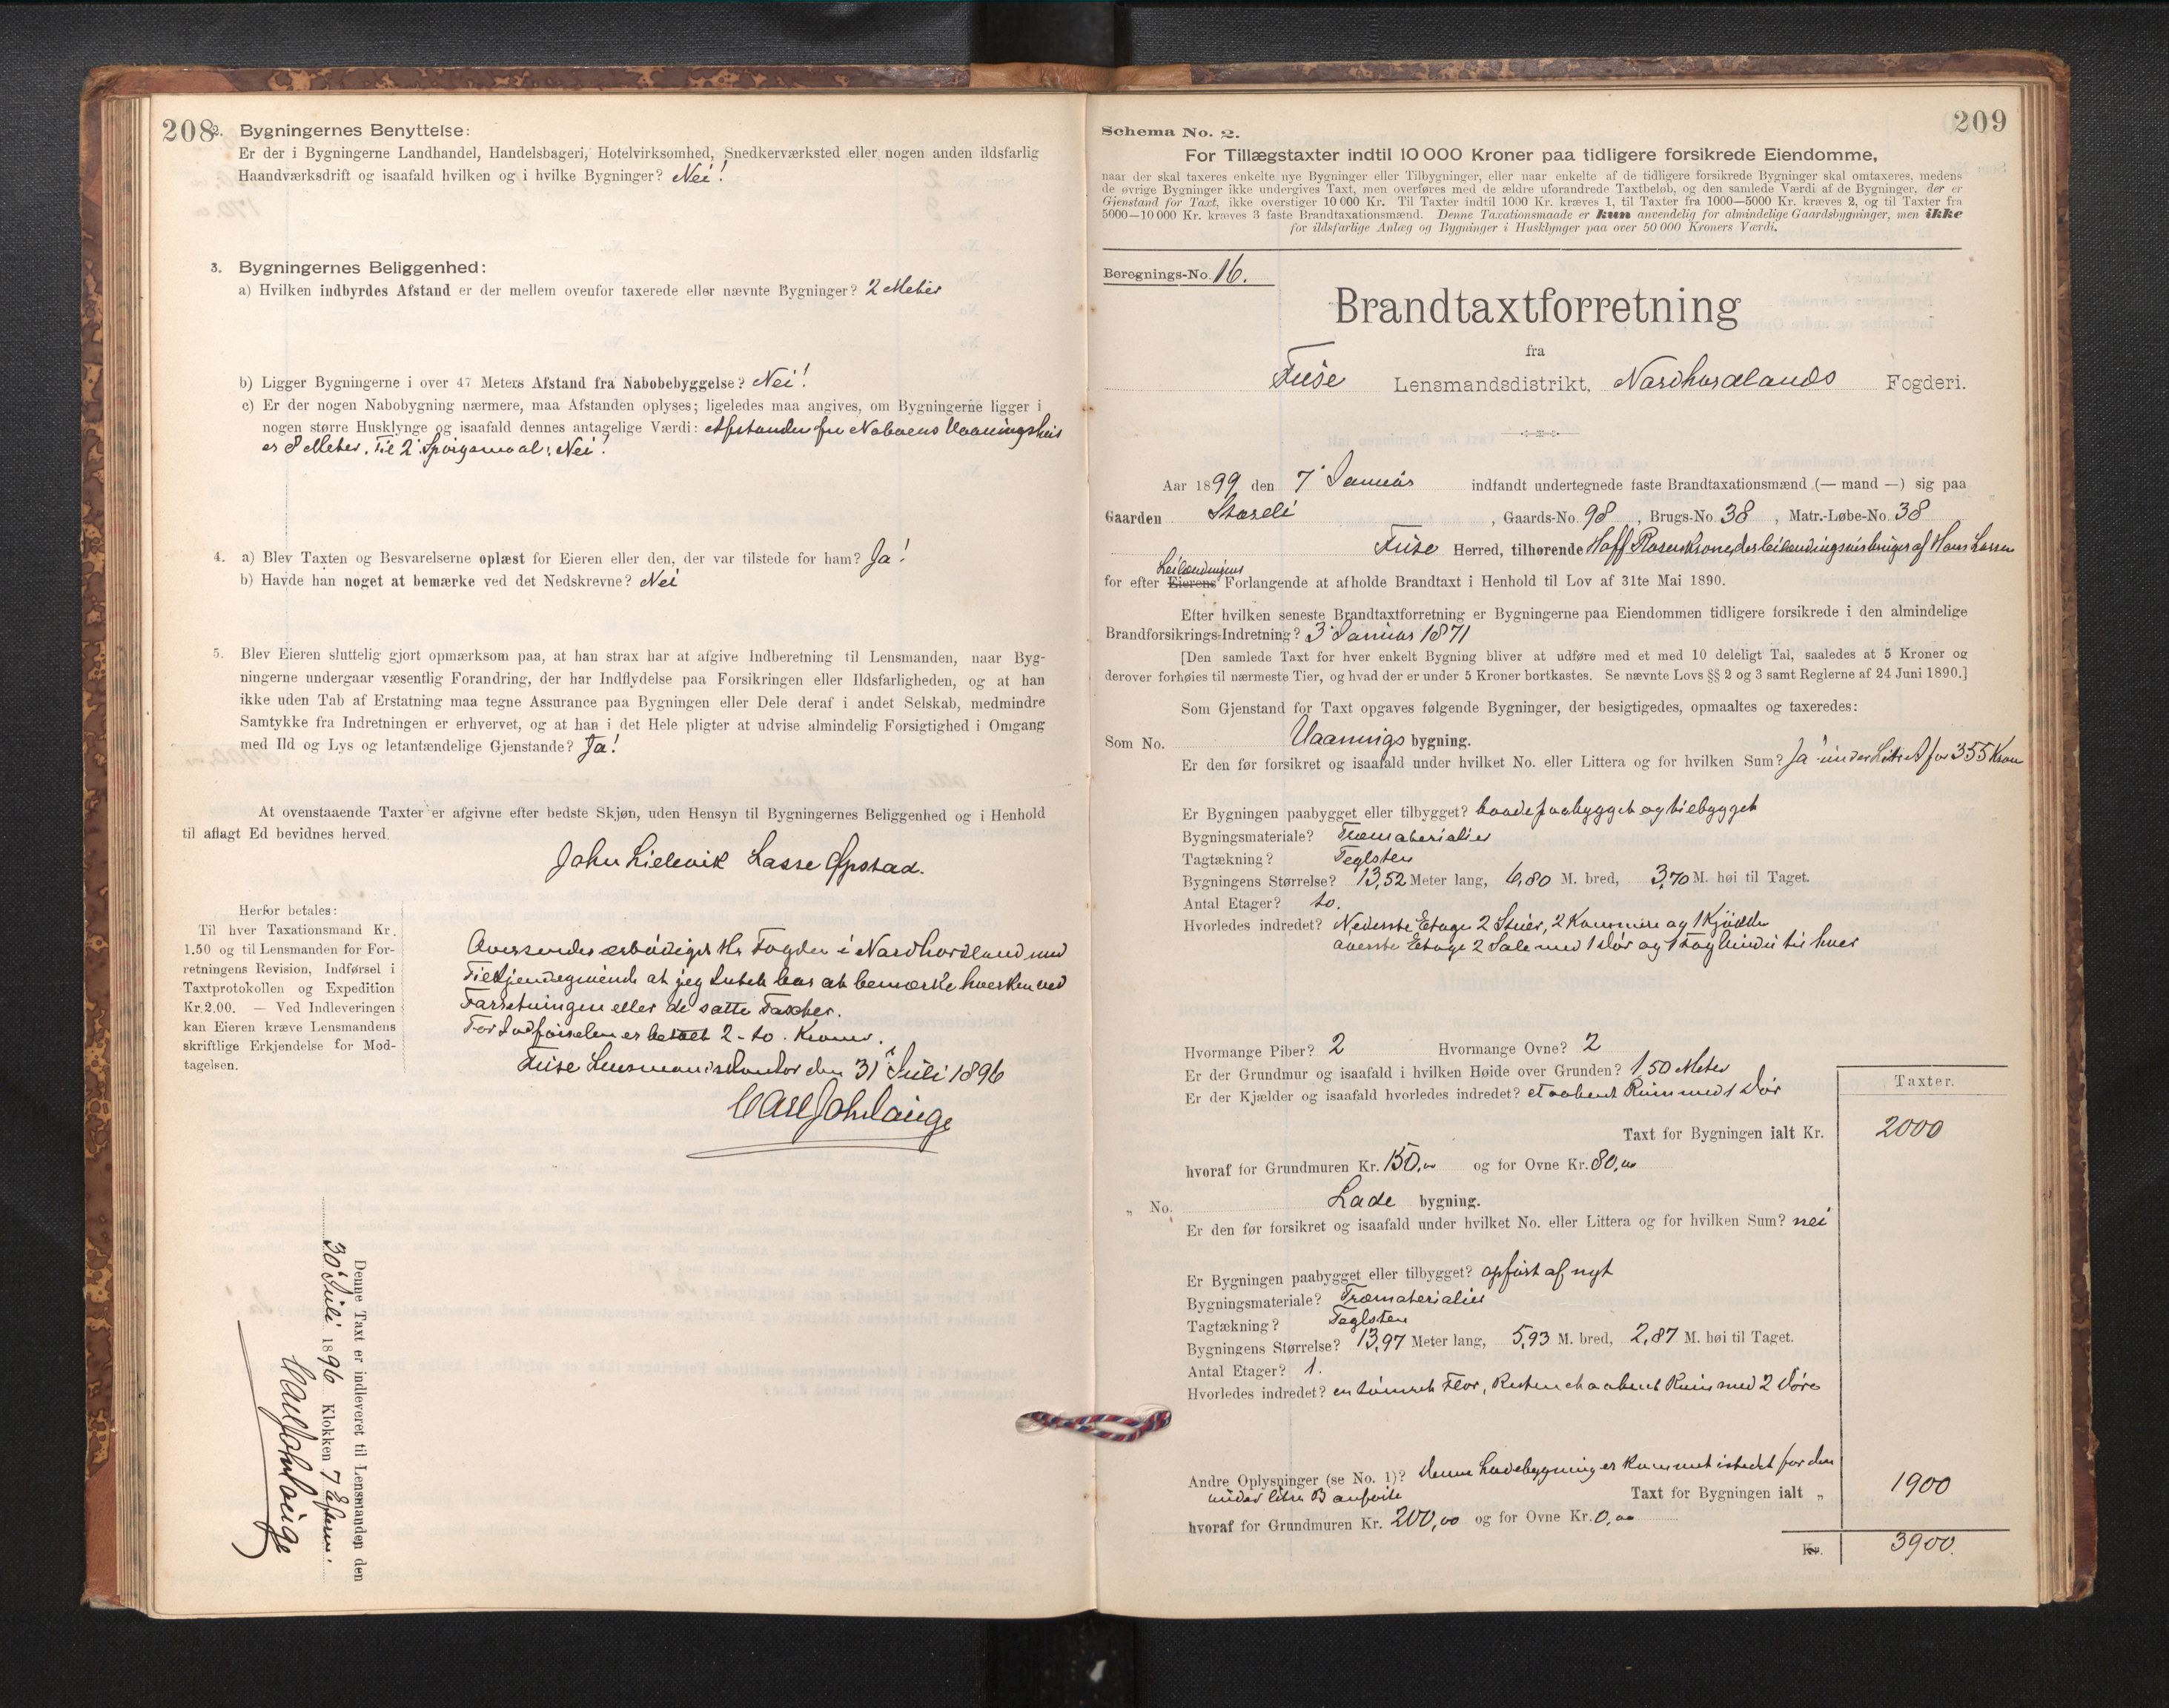 208
2. Bygningernes Benyttelse:
Er der i Bygningerne Landhandel, Handelsbageri, Hotelvirksomhed, Snedkerværksted eller nogen anden ildsfarlig
Haandværksdrift og isaafald hvilken og i hvilke Bygninger? Nei!
3. Bygningernes Beliggenhed:
a) Hvilken indbyrdes Afstand er der mellem ovenfor taxerede eller nævnte Bygninger? 2 Meter
b) Ligger Bygningerne i over 47 Meters Afstand fra Nabobebyggelse? Nei!
c) Er der nogen Nabobygning nærmere, maa Afstanden oplyses; ligeledes maa angives, om Bygningerne ligger i
nogen større Husklynge og isaafald dennes antagelige Værdi: Afstanden fra Naboens Vaaningshus
er 8 Meter. Til 2' Spørgsmaal: Nei!
4. a) Blev Taxten og Besvarelserne oplæst for Eieren eller den, der var tilstede for ham? Ja!
b) Havde han noget at bemærke ved det Nedskrevne? Nei
5. Blev Eieren sluttelig gjort opmærksom paa, at han strax har at afgive Indberetning til Lensmanden, naar Byg-
ningerne undergaar væsentlig Forandring, der har Indflydelse paa Forsikringen eller Ildsfarligheden, og at han
ikke uden Tab af Erstatning maa tegne Assurance paa Bygningen eller Dele deraf i andet Selskab, medmindre
Samtykke fra Indretningen er erhvervet, og at han i det Hele pligter at udvise almindelig Forsigtighed i Omgang
med Ild og Lys og letantændelige Gjenstande? Ja!
At ovenstaaende Taxter er afgivne efter bedste Skjøn, uden Hensyn til Bygningernes Beliggenhed og i Henhold
til aflagt Ed bevidnes herved.
John Lielevik Lasse Opstad.
Herfor betales:
Til hver Taxationsmand Kr.
1.50 og til Lensmanden for For-
retningens Revision, Indførsel i
Taxtprotokollen og Expedition
Kr. 2.00. — Ved Indleveringen
kan Eieren kræve Lensmandens
skriftlige Erkjendelse for Mod-
tagelsen.
Oversendes ærbødigst Hr. Fogden i Nordhordland med
Tilkjendegivende at jeg Intet har at bemærke hverken ved
Forretningen eller de satte Taxter.
For Indførselen er betalt 2 - to. Kroner.
Fuse Lensmandskontor den 31' Juli 1896
Carl Joh Lange
Denne Taxt er indleveret til Lensmanden den
30' Juli 1896 Klokken 7 Efterm.
Carl Joh Lange
209
Schema No. 2.
For Tillægstaxter indtil 10 000 Kroner paa tidligere forsikrede Eiendomme,
naar der skal taxeres enkelte nye Bygninger eller Tilbygninger, eller naar enkelte af de tidligere forsikrede Bygninger skal omtaxeres, medens
de øvrige Bygninger ikke undergives Taxt, men overføres med de ældre uforandrede Taxtbeløb, og den samlede Værdi af de Bygninger, der er
Gjenstand for Taxt, ikke overstiger 10 000 Kr. Til Taxter indtil 1000 Kr. kræves 1, til Taxter fra 1000—5000 Kr. kræves 2, og til Taxter fra
5000—10 000 Kr. kræves 3 faste Brandtaxationsmænd. Denne Taxationsmaade er kun anvendelig for almindelige Gaardsbygninger, men ikke
for ildsfarlige Anlæg og Bygninger i Husklynger paa over 50 000 Kroners Værdi.
Beregnings-No. 16.
Brandtaxtforretning
fra
Fuse Lensmandsdistrikt, Nordhordlands Fogderi.
Aar 1899 den 7' Januar indfandt undertegnede faste Brandtaxationsmænd (— mand —) sig paa
Gaarden Storeli , Gaards-No. 98 , Brugs-No. 38 , Matr.-Løbe-No. 38
Fuse Herred, tilhørende Hoff Rosenkrone, der leilendingsvis bruges af Hans Larsen
Leilendingens
for efter Eierens Forlangende at afholde Brandtaxt i Henhold til Lov af 31te Mai 1890.
Efter hvilken seneste Brandtaxtforretning er Bygningerne paa Eiendommen tidligere forsikrede i den almindelige
Brandforsikrings-Indretning? 3' Januar 1871
[Den samlede Taxt for hver enkelt Bygning bliver at udføre med et med 10 deleligt Tal, saaledes at 5 Kroner og
derover forhøies til nærmeste Tier, og hvad der er under 5 Kroner bortkastes. Se nævnte Lovs §§ 2 og 3 samt Reglerne af 24 Juni 1890.]
Som Gjenstand for Taxt opgaves følgende Bygninger, der besigtigedes, opmaaltes og taxeredes:
Som No. Vaanings bygning.
Er den før forsikret og isaafald under hvilket No. eller Littera og for hvilken Sum? Ja under Litra A for 355 Kron
Er Bygningen paabygget eller tilbygget? baade paabygget og tilbygget
Bygningsmateriale? Træmaterialier
Tagtækning? Teglsten
Bygningens Størrelse? 13,52 Meter lang, 6,80 M. bred, 3,70 M. høi til Taget.
Antal Etager? to.
Hvorledes indredet? Nederste Etage 2 Stuer, 2 Kammere og 1 Kjøkken
øverste Etage 2 Sale med 1 Dør og 1 Fag Vindu til hver
Hvormange Piber? 2 Hvormange Ovne? 2
Er der Grundmur og isaafald i hvilken Høide over Grunden? 1,50 Meter
Er der Kjælder og isaafald hvorledes indredet? et aabent Rum med 1 Dør
Taxter.
Taxt for Bygningen ialt Kr. 2000
hvoraf for Grundmuren Kr. 150,00 og for Ovne Kr. 80,00
„ No. Lade bygning.
Er den før forsikret og isaafald under hvilket No. eller Littera og for hvilken Sum? nei
Er Bygningen paabygget eller tilbygget? opført af nyt
Bygningsmateriale? Træmaterialier
Tagtækning? Teglsten
Bygningens Størrelse? 13,97 Meter lang, 5,93 M. bred, 2,87 M. høi til Taget.
Antal Etager? 1.
Hvorledes indredet? en tømret Flor, Resten et aabent Rum med 2 Døre
Andre Oplysninger (se No. 1)? Denne Ladebygning er kommet istedet for den
under litra B anførte
Taxt for Bygningen ialt „ 1900
hvoraf for Grundmuren Kr. 200,00 og for Ovne Kr. 0,00
Kr. 3900.